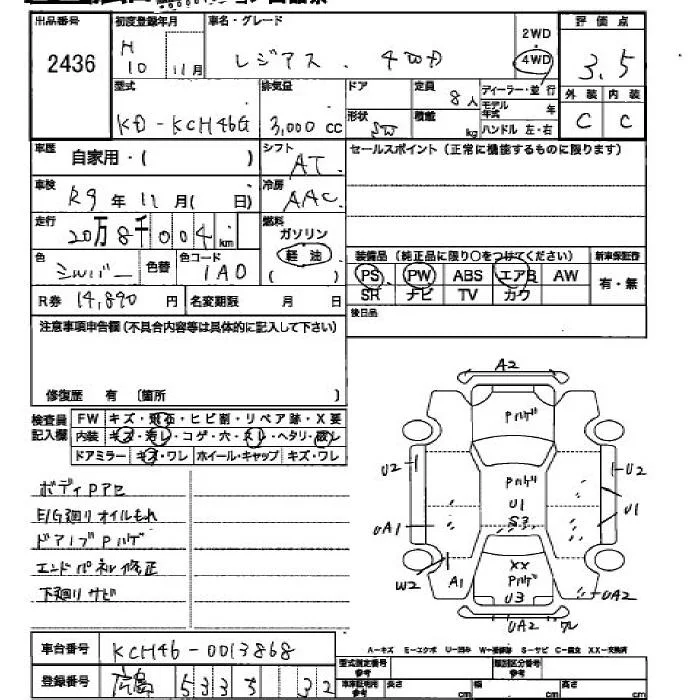 出品番号 初度登録年月 車名・グレード 2WD 評価点
2436 H 10 11月 レジアス . 4WD 3.5
型式 排気量 ドア 定員 8人 ディーラー・並行 外装 内装
モデル年式 年
KD-KCH46G 3,000 cc 形状 SW 積載 kg ハンドル 左・右 C C
車歴 自家用・( ) シフト AT セールスポイント(正常に機能するものに限ります)
車検 R9年11月( 日) 冷房 AAC
走行 20万8千004km 燃料 ガソリン
軽油
( )
色 シルバー 色替 色コード 1A0 装備品(純正品に限り○をつけてください) 新車保証書
PS PW ABS エアB AW 有・無
R券 14,890円 名変期限 月 日 SR ナビ TV カワ
後日品
注意事項申告欄(不具合内容等は具体的に記入して下さい)
修復歴 有 〔箇所 〕
検査員記入欄 FW キズ・飛石・ヒビ割・リペア跡・X要
内装 キズ・汚レ・コゲ・穴・スレ・ヘタリ・破レ
ドアミラー キズ・ワレ ホイール・キャップ キズ・ワレ
ボディPアセ
E/G廻りオイルもれ
ドアノブPハゲ
エンドパネル修正
下廻りサビ
A2
Pハゲ
U2
U2
Pハゲ
U1
S3
UA1
U1
W2
A1
XX
Pハゲ
U3
UA2
UA2 ワレ
車台番号 KCH46-0013868
A-キズ E-エクボ U-凹み W-補修跡 S-サビ C-腐食 XX-交換済
登録番号 広島 533 32
型式指定番号 参考 類別区分番号 参考
車車証明用 参考 長さ cm 幅 cm 高さ cm